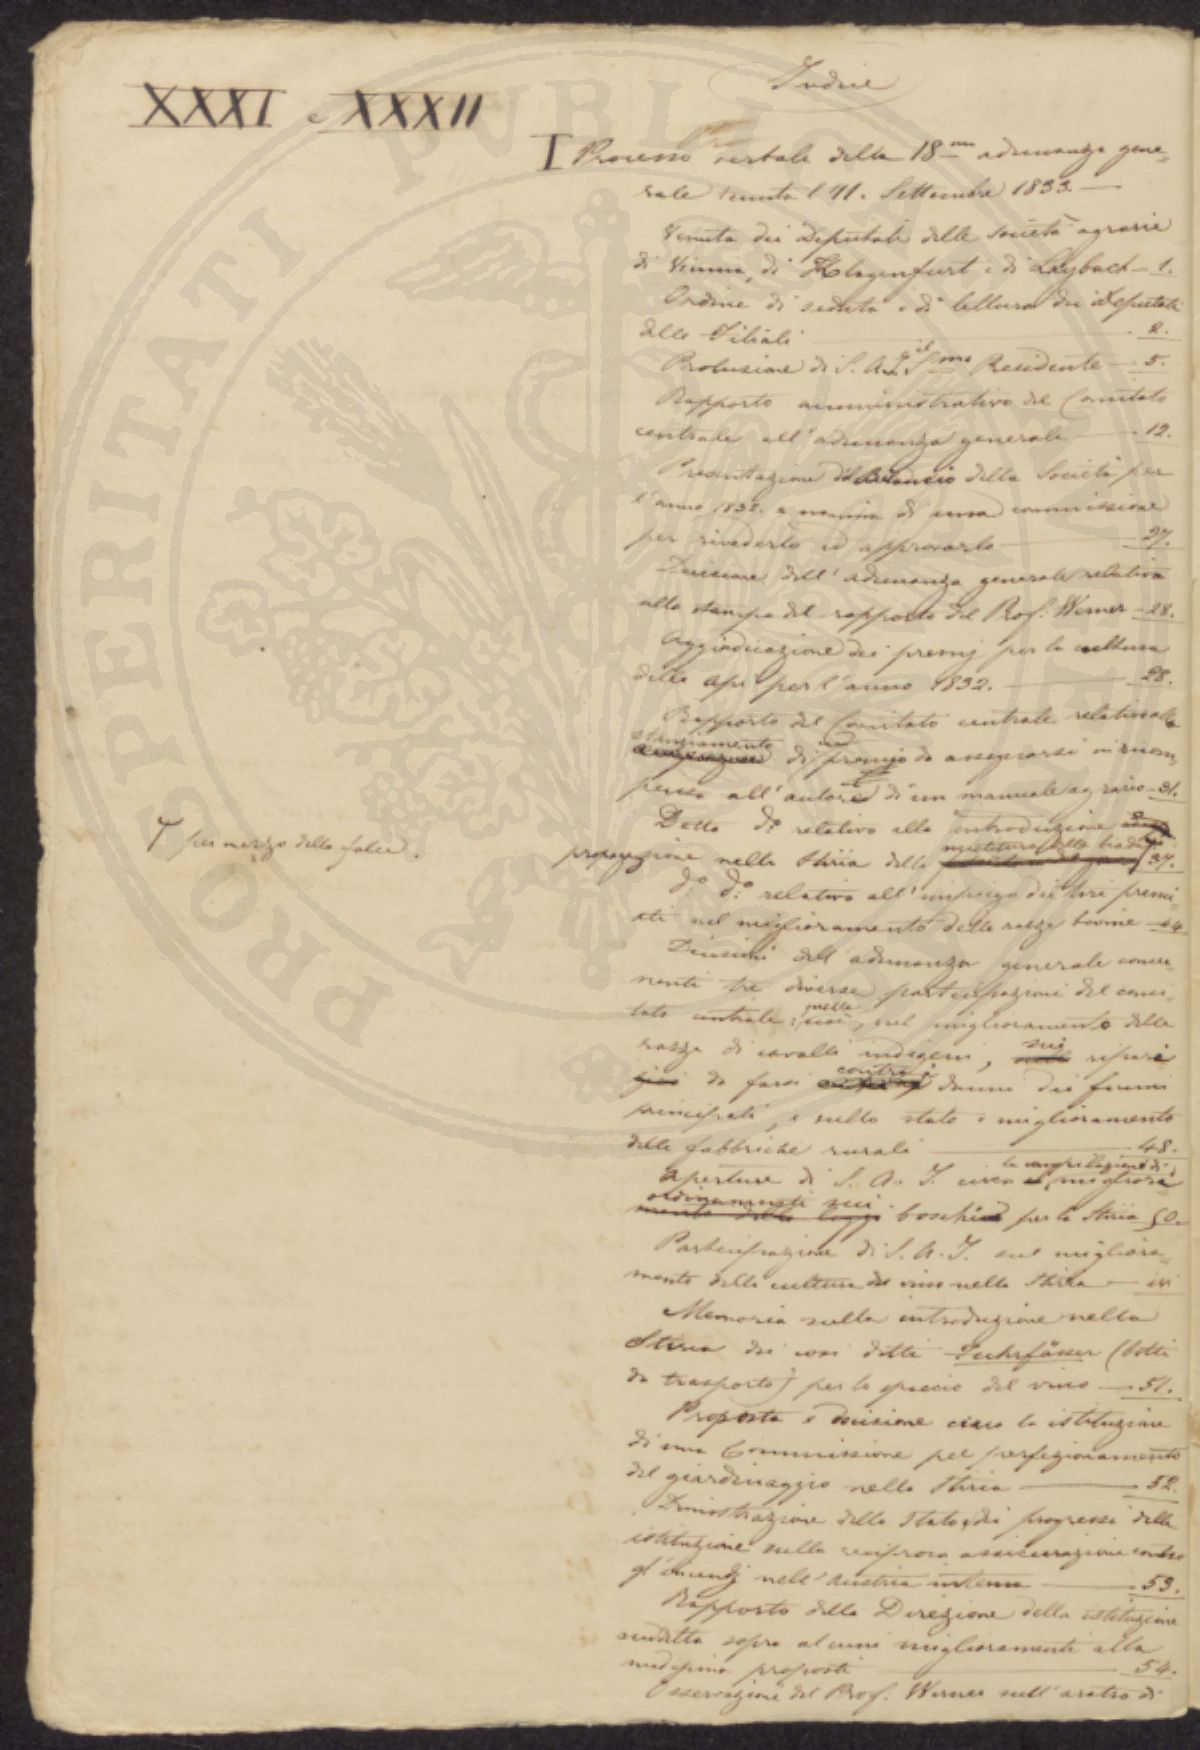 Indice
XXXI e XXXII
I Processo verbale della 18ma adunanza gene-
rale tenuta l'11. Settembre 1833.
Venuta dei Deputati delle Società agrarie
di Vienna, di Klagenfurt e di Laybach — 1.
Ordine di seduta e di lettura dei Deputati
delle Filiali — 2.
Prolusione di S. A. I. il Smo Presidente — 5.
Rapporto amministrativo del Comitato
centrale all'adunanza generale — 12.
Presentazione del Bilancio della Società per
l'anno 1832. e nomina di una commissione
per rivederlo ed approvarlo — 27.
Decisione dell'adunanza generale relativa
alla stampa del rapporto del Prof. Werner — 28.
Aggiudicazione dei premj per la cultura
delle api per l'anno 1832. — 28.
Rapporto del Comitato centrale relativo allo
stanziamento di un premio da assegnarsi in ricom-
pensa all'autore di un manuale agrario — 31.
Detto do. relativo alla introduzione e
propagazione nella Stiria della mietitura delle biade — 37.
per mezzo della falce.
do. do. relativo all'impiego dei tori premi-
ati nel miglioramento delle razze bovine — 44
Decisioni dell'adunanza generale concer-
nenti tre diverse partecipazioni del comi-
tato centrale: cioè, nel miglioramento delle
razze di cavalli indigeni, sui ripari
da farsi contro i danni dei fiumi
principali, e sullo stato e miglioramento
delle fabbriche rurali — 48.
Aperture di S. A. I. circa la compilazione di migliori
ordinamenti sui boschi per la Stiria 50.
Partecipazione di S. A. I. sul migliora-
mento della cultura del vino nella Stiria — ivi
Memoria sulla introduzione nella
Stiria dei così detti Fuhrfässer (botti
da trasporto) per lo spaccio del vino — 51.
Proposta e decisione circa la istituzione
di una Commissione pel perfezionamento
del giardinaggio nella Stiria — 52.
Dimostrazione dello stato e dei progressi della
istituzione sulla reciproca assicurazione contro
gl'incendj nell'Austria interna — 53.
Rapporto della Direzione della istituzione
suddetta sopra alcuni miglioramenti alla
medesima proposti — 54.
Osservazione del Prof. Werner sull'aratro di